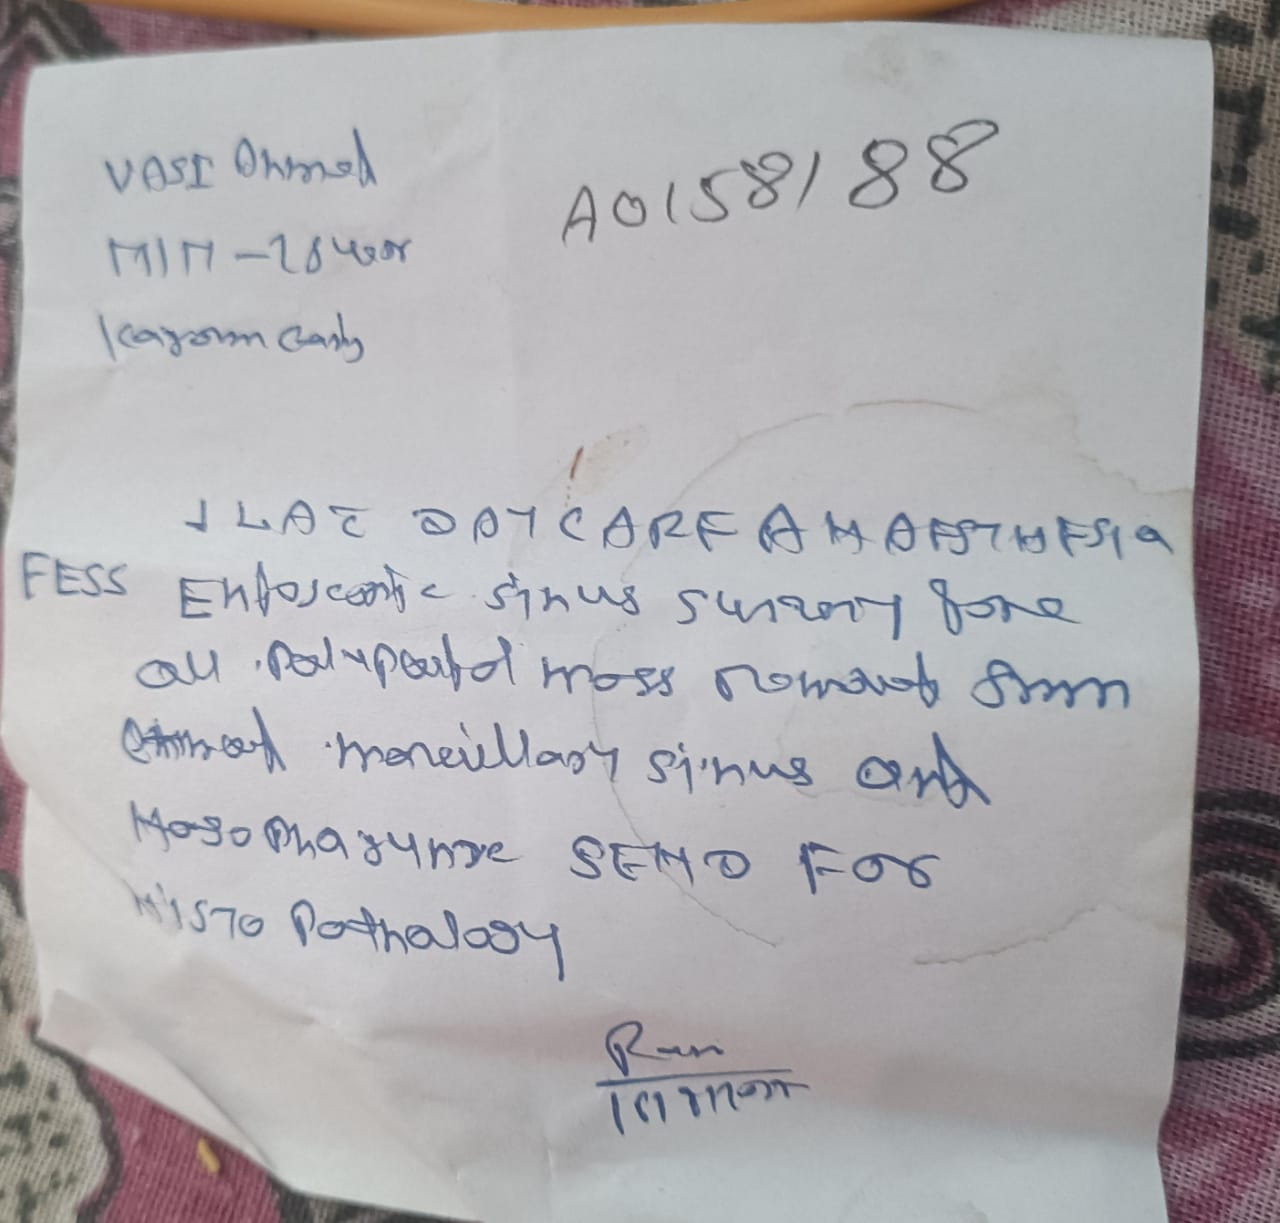 VASI Ahmed
A0158188
M/M - 28 year
Karom
↓ LA DAYCARE ANAESTHESIA
FESS Endoscopic sinus surgery done
all polypoidal mass removed from
ethmoid maxillary sinus and
Nasopharynx SEND FOR
HISTO Pathology